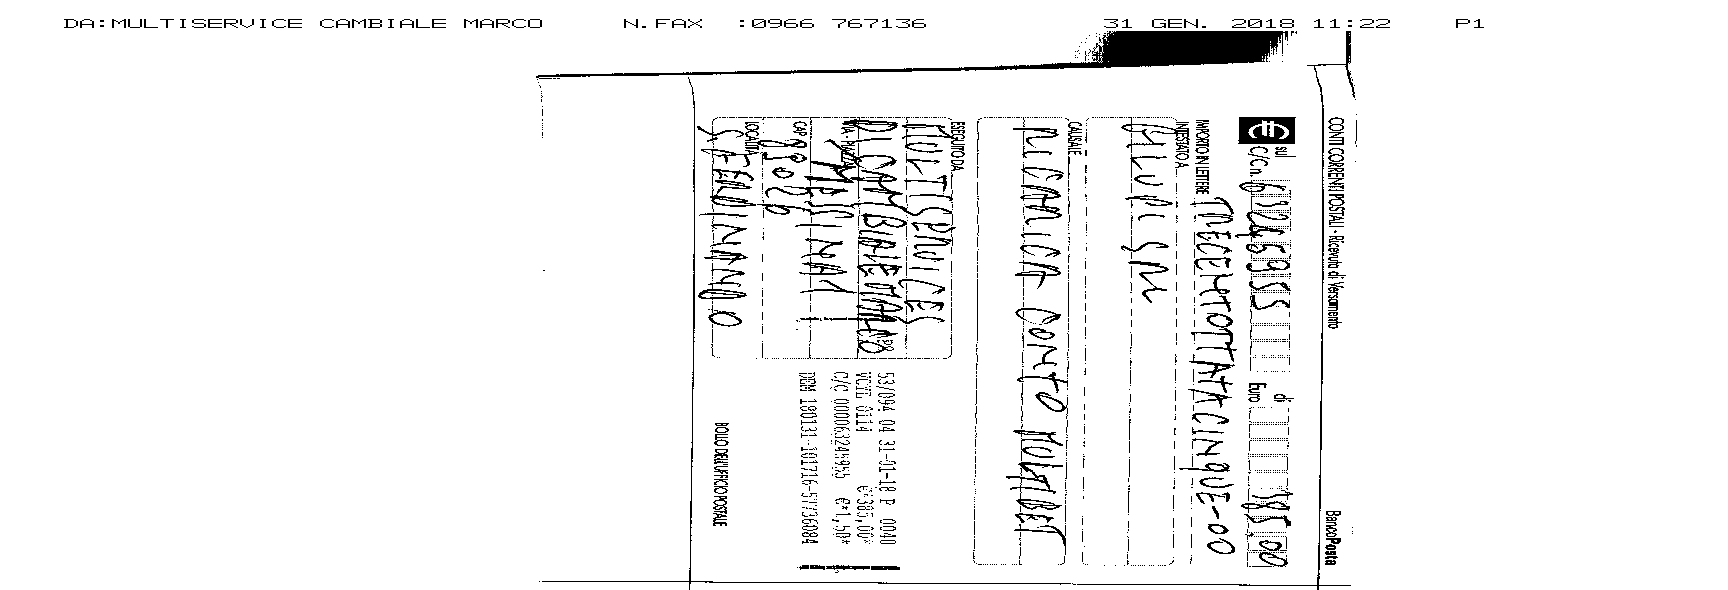 DA:MULTISERVICE CAMBIALE MARCO N.FAX :0966 767136 31 GEN. 2018 11:22 P1
CONTI CORRENTI POSTALI - Ricevuta di Versamento BancoPosta
sul C/C n. 63245955 di Euro 385,00
IMPORTO IN LETTERE TRECENTOTTATACINQUE-00
INTESTATO A
SRL
CAUSALE
RICARICA CONTO
ESEGUITO DA
MULTISERVICES
DI CAMBIALE MARCO
VIA - PIAZZA MESSINA 1
CAP 89026
LOCALITÀ
S. FERDINANDO
53/094 04 31-01-18 P 0040
VCYL 0114 €*385,00*
C/C 000063245955 €*1,50*
BOLLO DELL'UFFICIO POSTALE